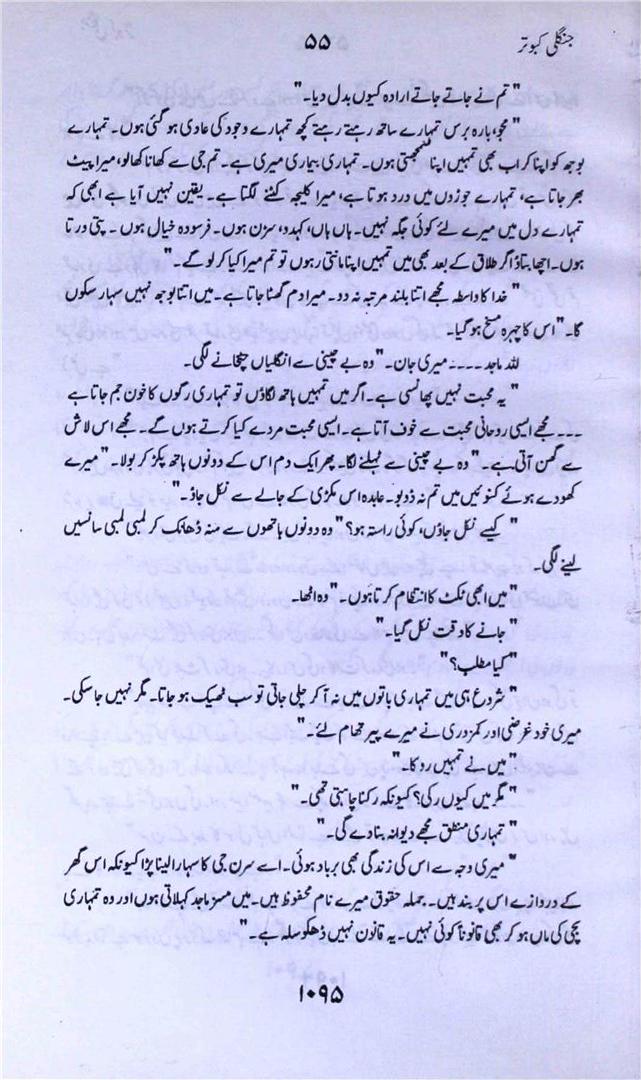 جنگلی کبوتر
۵۵
"تم نے جاتے جاتے ارادہ کیوں بدل دیا۔"
"مجّو بارہ برس تمہارے ساتھ رہتے رہتے کچھ تمہارے وجود کی عادی ہو گئی ہوں۔ تمہارے
بوجھ کو اپنا کر اب بھی تمہیں اپنا سمجھتی ہوں۔ تمہاری بیماری میری ہے۔ تم جی سے کھانا کھالو، میرا پیٹ
بھر جاتا ہے، تمہارے جوڑوں میں درد ہوتا ہے، میرا کلیجہ کٹنے لگتا ہے۔ یقین نہیں آیا ہے ابھی کہ
تمہارے دل میں میرے لئے کوئی جگہ نہیں۔ ہاں ہاں، کہدو، سڑن ہوں۔ فرسودہ خیال ہوں۔ پتی ورتا
ہوں۔ اچھا بتاؤ اگر طلاق کے بعد بھی میں تمہیں اپنا مانتی رہوں تو تم میرا کیا کر لو گے۔"
"خدا کا واسطہ مجھے اتنا بلند مرتبہ نہ دو۔ میرا دم گھٹا جاتا ہے۔ میں اتنا بوجھ نہیں سہار سکوں
گا۔" اس کا چہرہ مسخ ہو گیا۔
للہ ماجد ۔۔۔۔ میری جان۔" وہ بے چینی سے انگلیاں چٹخانے لگی۔
"یہ محبت نہیں پھانسی ہے۔ اگر میں تمہیں ہاتھ لگاؤں تو تمہاری رگوں کا خون جم جاتا ہے
۔۔۔ مجھے ایسی روحانی محبت سے خوف آتا ہے۔ ایسی محبت مردے کیا کرتے ہوں گے۔ مجھے اس لاش
سے گھن آتی ہے۔" وہ بے چینی سے ٹہلنے لگا۔ پھر ایک دم اس کے دونوں ہاتھ پکڑ کر بولا۔ "میرے
کھودے ہوئے کنوئیں میں تم نہ ڈوبو۔ عابدہ اس مکڑی کے جالے سے نکل جاؤ۔"
"کیسے نکل جاؤں، کوئی راستہ ہو؟" وہ دونوں ہاتھوں سے منہ ڈھانک کر لمبی لمبی سانسیں
لینے لگی۔
"میں ابھی ٹکٹ کا انتظام کرتا ہوں۔" وہ اٹھا۔
"جانے کا وقت نکل گیا۔"
"کیا مطلب؟"
"شروع ہی میں تمہاری باتوں میں نہ آکر چلی جاتی تو سب ٹھیک ہو جاتا۔ مگر نہیں جا سکی۔
میری خود غرضی اور کمزوری نے میرے پیر تھام لئے۔"
"میں نے تمہیں روکا۔"
"مگر میں کیوں رکی؟ کیونکہ رکنا چاہتی تھی۔"
"تمہاری منطق مجھے دیوانہ بنا دے گی۔"
"میری وجہ سے اس کی زندگی بھی برباد ہوئی۔ اسے سرن جی کا سہارا لینا پڑا کیونکہ اس گھر
کے دروازے اس پر بند ہیں۔ جملہ حقوق میرے نام محفوظ ہیں۔ میں مسز ماجد کہلاتی ہوں اور وہ تمہاری
بچی کی ماں ہو کر بھی قانوناً کوئی نہیں۔ یہ قانون نہیں ڈھکوسلہ ہے۔"
۱۰۹۵